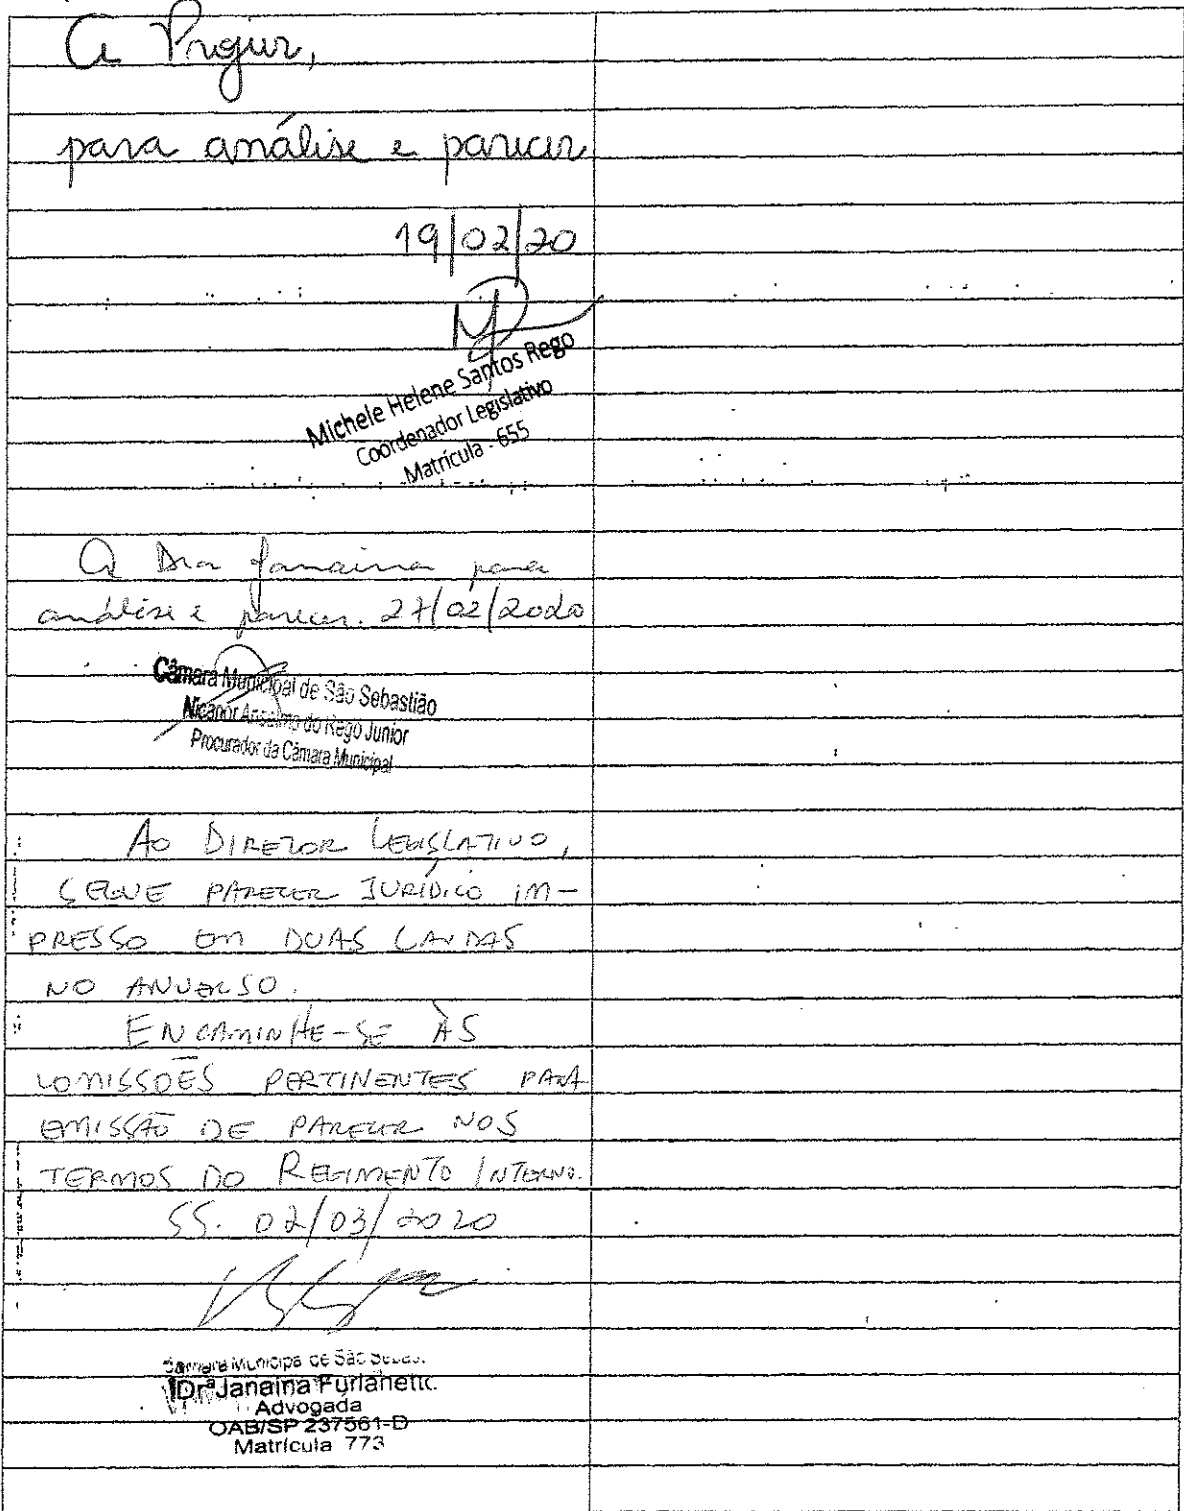 A Projur,
para análise e parecer
19/02/20
Michele Helene Santos Rego
Coordenador Legislativo
Matrícula - 655
A Dra Janaina para
análise e parecer. 27/02/2020
Câmara Municipal de São Sebastião
Nicanor Anselmo do Rego Junior
Procurador da Câmara Municipal
AO DIRETOR LEGISLATIVO,
SEGUE PARECER JURÍDICO IM-
PRESSO EM DUAS LAUDAS
NO ANVERSO.
ENCAMINHE-SE ÀS
COMISSÕES PERTINENTES PARA
EMISSÃO DE PARECER NOS
TERMOS DO REGIMENTO INTERNO.
SS. 02/03/2020
Câmara Municipal de São Sebas
Drª Janaina Furlanetto
Advogada
OAB/SP 237561-D
Matrícula 773